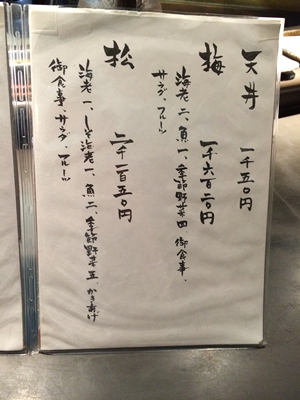 天丼 一千五〇円
梅 一千六百二〇円
海老二、魚一、季節野菜四 御食事、
サラダ、フルーツ
松 二千一百五〇円
海老一、しそ海老一、魚二、季節野菜五、かきあげ
御食事、サラダ、フルーツ